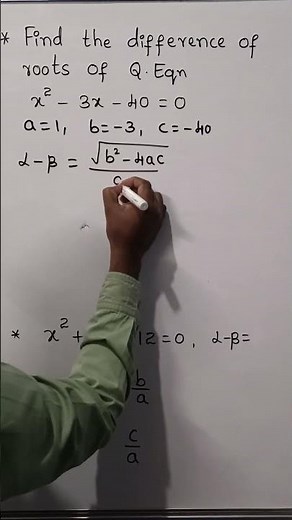 * Find the difference of
roots of Q.Eqn
x² - 3x - 40 = 0
a=1, b=-3, c=-40
α-β = √(b²-4ac)
* x² + 12=0, α-β=
b/a
c/a